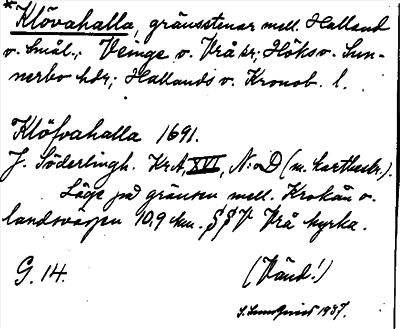 *Klövahalla, gränsstenar mell. Halland
o. Smål.; Veinge o. Vrå sr; Höks o. Sun-
nerbo hdr; Hallands o. Kronob. l.
Klöfvahalla 1691.
J. Söderlingh. Kr.A, XVI, N:o D (m. kartbeskr.).
Läge på gränsen mell. Krokån o.
landsvägen 10,9 km. SSV Vrå kyrka.
G. 14. (Vänd!)
S. Sundqvist 1937.